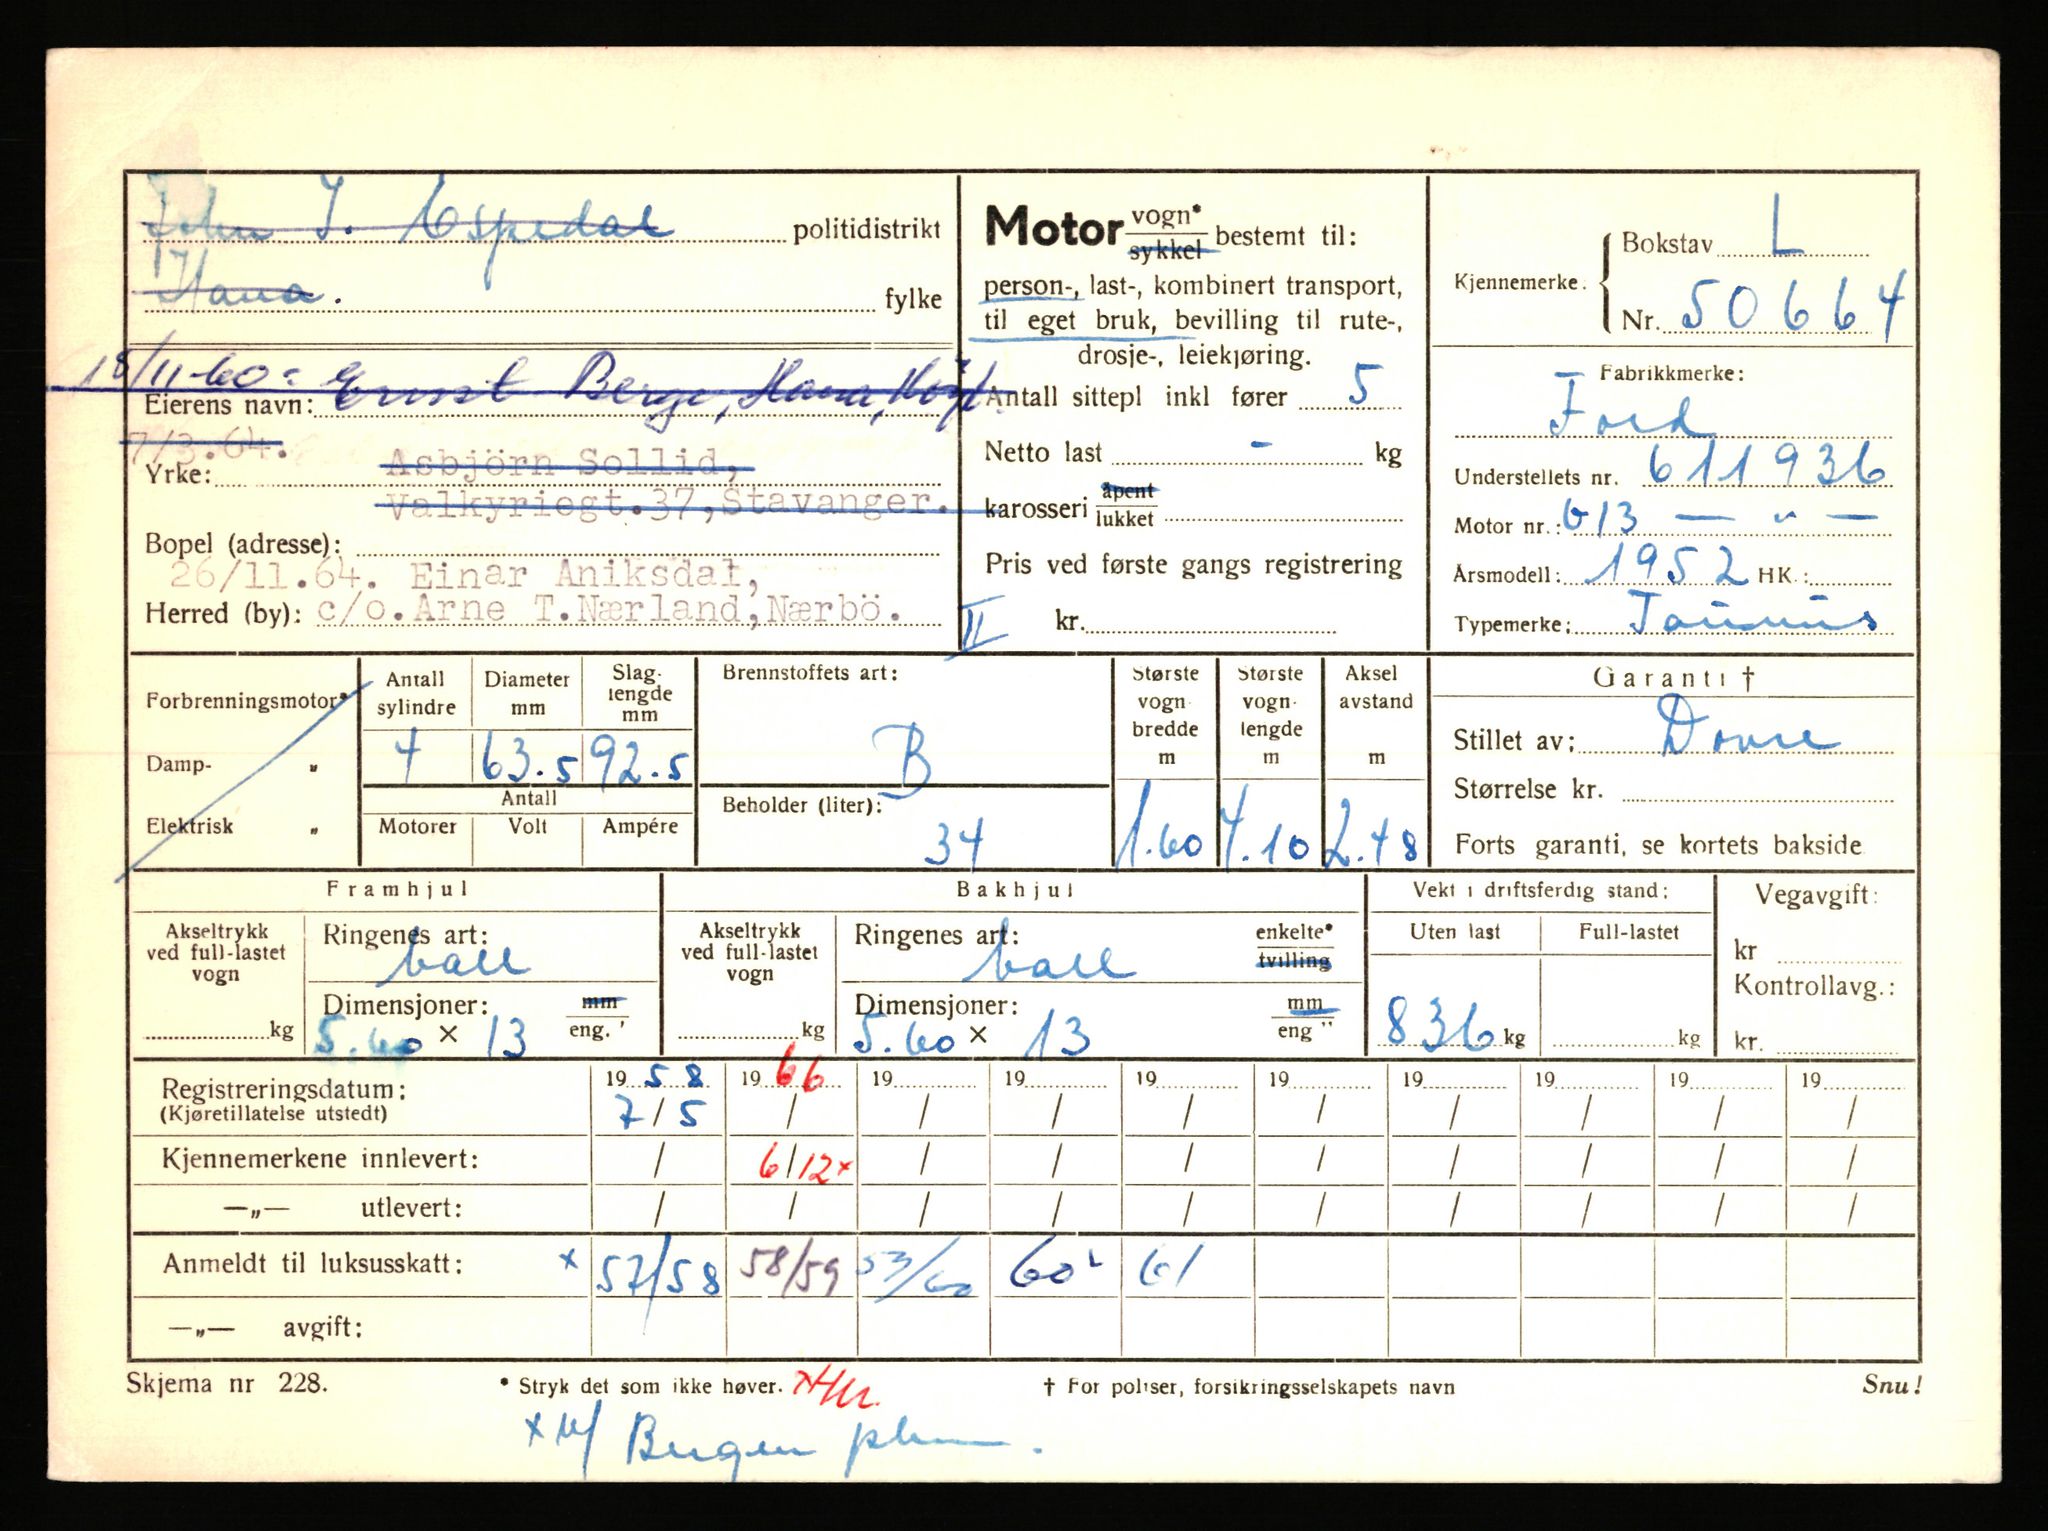 John I. Espedal politidistrikt
Hana. fylke
18/11-60: Ernst Berge, Hana, Høyl.
Eierens navn:
7/3.64.
Yrke: Asbjörn Sollid,
Valkyriegt.37,Stavanger.
Bopel (adresse):
26/11.64. Einar Aniksdal,
Herred (by): c/o.Arne T.Nærland,Nærbö.
Motor vogn* sykkel bestemt til:
person-, last-, kombinert transport,
til eget bruk, bevilling til rute-,
drosje-, leiekjøring.
Antall sittepl inkl fører 5
Netto last - kg
karosseri åpent lukket
Pris ved første gangs registrering
II kr.
Kjennemerke. Bokstav L
Nr. 50664
Fabrikkmerke:
Ford
Understellets nr. 611936
Motor nr.: G13 — " —
Årsmodell: 1952 HK.:
Typemerke: Taunus
Forbrenningsmotor*
Damp- "
Elektrisk "
Antall sylindre
Diameter mm
Slag-lengde mm
4 63.5 92.5
Antall
Motorer Volt Ampére
Brennstoffets art:
B
Beholder (liter):
34
Største vogn bredde m
1.60
Største vogn lengde m
4.10
Aksel avstand m
2.48
Garanti †
Stillet av: Dovre
Størrelse kr.
Forts garanti, se kortets bakside
Framhjul
Akseltrykk ved full-lastet vogn
kg
Ringenes art:
ball
Dimensjoner: mm eng.'
5.60 × 13
Bakhjul
Akseltrykk ved full-lastet vogn
kg
Ringenes art: enkelte* tvilling
ball
Dimensjoner: mm eng "
5.60 × 13
Vekt i driftsferdig stand:
Uten last Full-lastet
836 kg kg
Vegavgift:
kr
Kontrollavg.:
kr.
Registreringsdatum: 1958 1966 19 19 19 19 19 19 19 19
(Kjøretillatelse utstedt) 7/5 / / / / / / / / /
Kjennemerkene innlevert: / 6/12× / / / / / / / /
—„— utlevert: / / / / / / / / / /
Anmeldt til luksusskatt: × 57/58 58/59 53/60 60 61
—„— avgift:
Skjema nr 228. * Stryk det som ikke høver. † For poliser, forsikringsselskapets navn Snu!